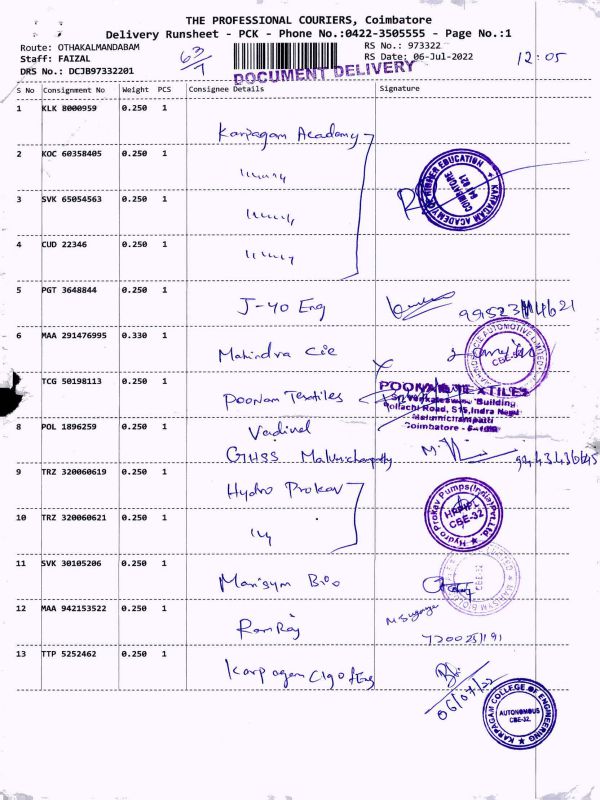 THE PROFESSIONAL COURIERS, Coimbatore
Delivery Runsheet - PCK - Phone No.:0422-3505555 - Page No.:1
Route: OTHAKALMANDABAM
Staff: FAIZAL
DRS No.: DCJB97332201
63/1
RS No.: 973322
RS Date: 06-Jul-2022
12:05
DOCUMENT DELIVERY
S No Consignment No Weight PCS Consignee Details Signature
1 KLK 8000959 0.250 1
Karpagam Academy
2 KOC 60358405 0.250 1
3 SVK 65054563 0.250 1
4 CUD 22346 0.250 1
KARPAGAM ACADEMY OF HIGHER EDUCATION
COIMBATORE
641 021
5 PGT 3648844 0.250 1
J-40 Eng
6 MAA 291476995 0.330 1
Mahindra Cie
MAHINDRA CIE AUTOMOTIVE LIMITED
TCG 50198113 0.250 1
Poonam Textiles
POONAM TEXTILES
Building
Pollachi Road, S15, Indra Nagar
Malumichampatti
Coimbatore -
8 POL 1896259 0.250 1
Vadivel
GHSS Malumichampatty
9 TRZ 320060619 0.250 1
Hydro Prokav
10 TRZ 320060621 0.250 1
Hydro Prokav Pumps(India)Pvt.Ltd.
CBE-32
11 SVK 30105206 0.250 1
Marisym Bio
12 MAA 942153522 0.250 1
Ram Raj
M Suganya
7200251191
13 TTP 5252462 0.250 1
Karpagam Clg of Eng
06/07/22
KARPAGAM COLLEGE OF ENGINEERING
AUTONOMOUS
CBE-32.